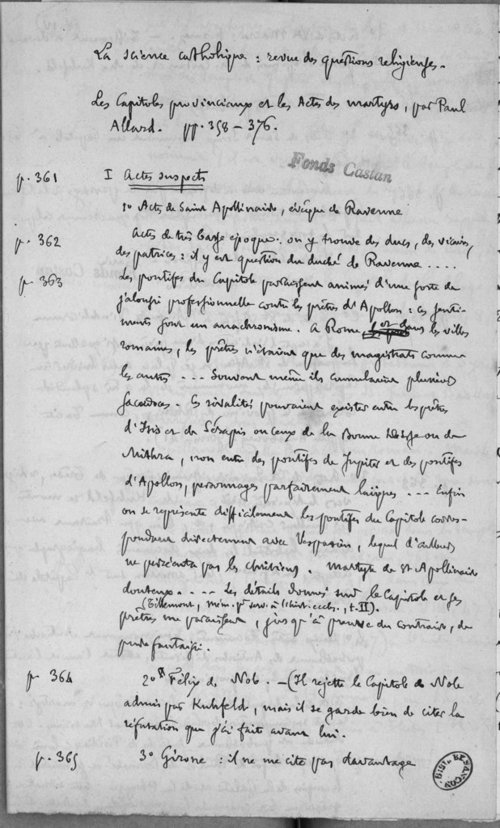 La Science catholique : revue des questions religieuses.
Les Capitoles provinciaux et les Actes des martyrs, par Paul
Allard. pp. 358 – 376.
Fonds Castan
p. 361 I Actes suspects
1o Actes de Saint Apollinaire, évêque de Ravenne
p. 362 Actes de très basse époque. on y trouve des ducs, des vicaires,
des patrices : il y est question du duché de Ravenne ....
p. 363 Les pontifes du Capitole paraissent animés d'une sorte de
jalousie professionnelle contre les prêtres d'Apollon : ces senti-
ments sont un anachronisme. A Rome, et dans les villes
romaines, les prêtres n'étaient que des magistrats comme
les autres .... Souvent même ils cumulaient plusieurs
sacerdoces. Des rivalités pouvaient exister entre les prêtres
d'Isis et de Sérapis ou ceux de la Bonne Déesse ou de
Mithra, non entre des pontifes de Jupiter et des pontifes
d'Apollon, personnages parfaitement laïques .... Enfin
on se représente difficilement les pontifes du Capitole corres-
pondant directement avec Vespasien, lequel d'ailleurs
ne persécuta pas les chrétiens. martyre de St Apollinaire
douteux ..... Les détails donnés sur le Capitole et ses
(Tillemont, mém. pr serv. à l'hist. ecclés., t. II).
prêtres me paraissent, jusqu'à preuve du contraire, de
pure fantaisie.
p. 364 2o Félix de Nole. – (Il rejette le Capitole de Nole
admis par Kuhfeld, mais il se garde bien de citer la
réfutation que j'ai faite avant lui.
p. 365 3o Girone : il ne me cite pas davantage
BIBL. BESANÇON